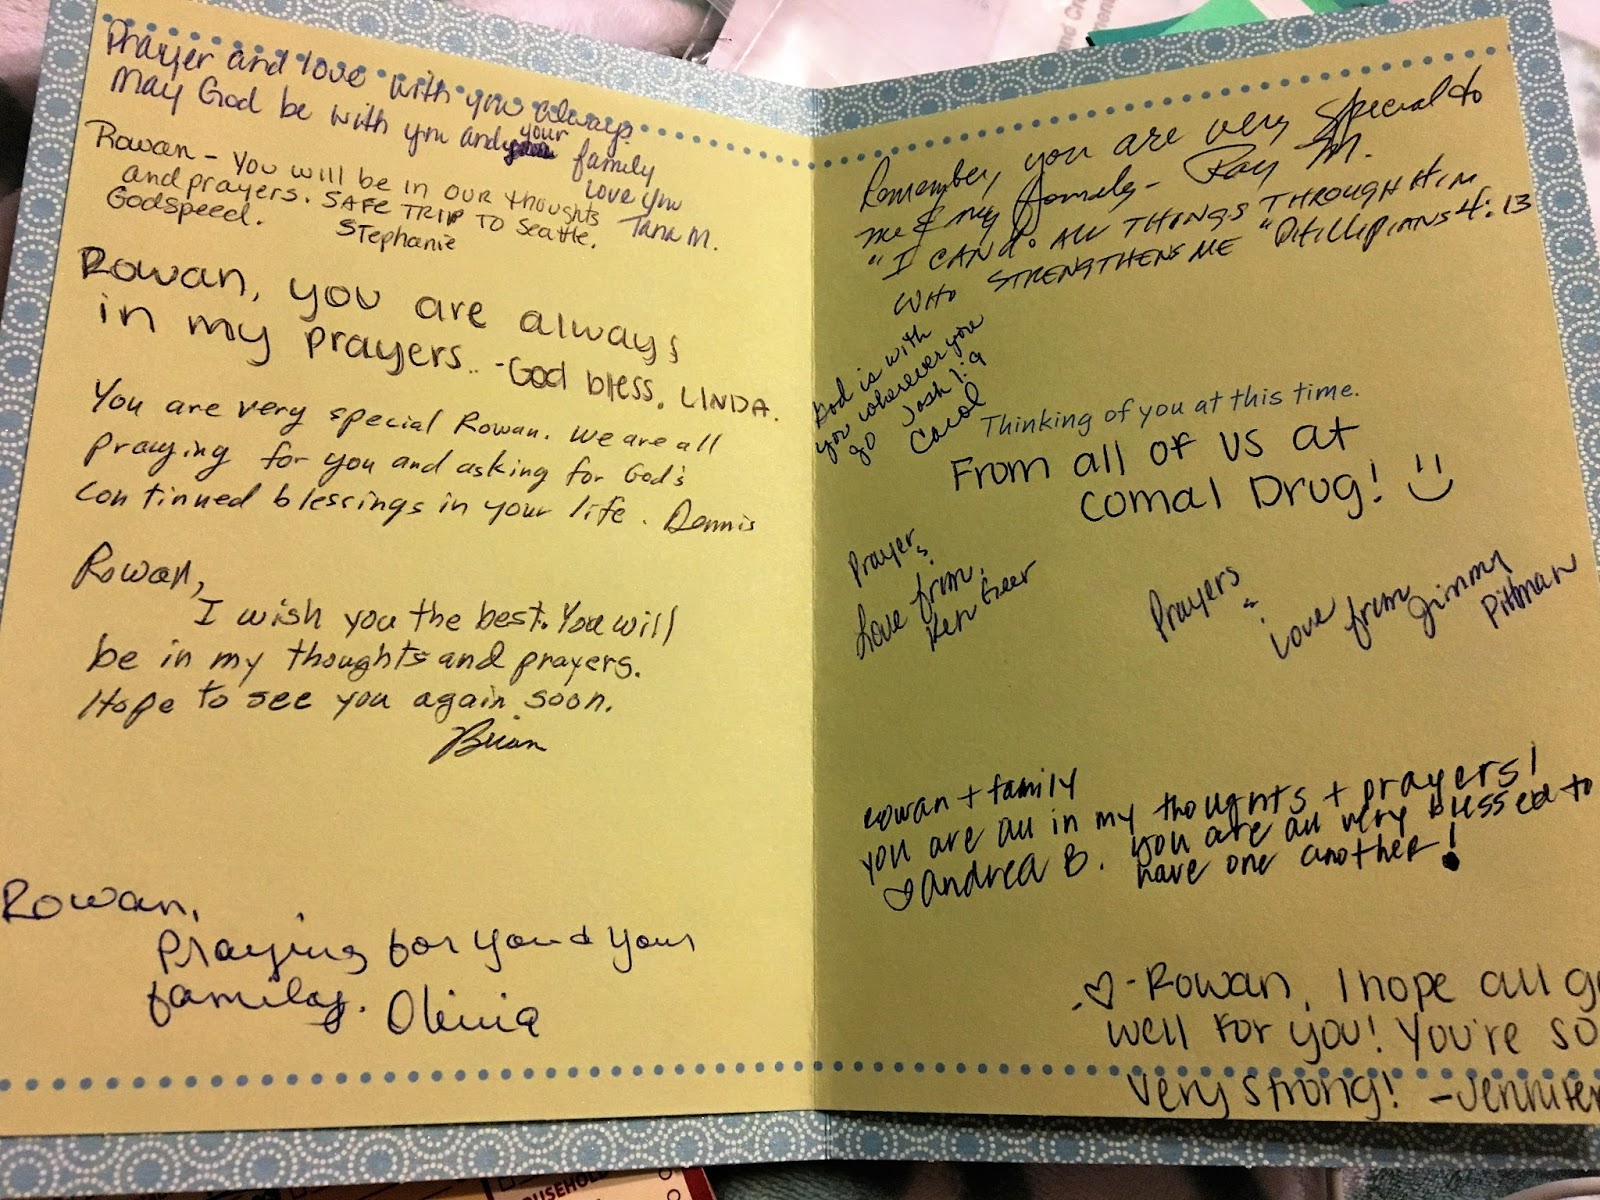 Prayer and love with you always.
May God be with you and your family
Love you
Tana M.
Rowan - You will be in our thoughts
and prayers. SAFE TRIP TO Seattle.
Godspeed.
Stephanie
Rowan, you are always
in my prayers.. -God bless. LINDA.
You are very special Rowan. We are all
praying for you and asking for God's
continued blessings in your life. Dennis
Rowan,
I wish you the best. You will
be in my thoughts and prayers.
Hope to see you again soon.
Brian
Rowan,
Praying for you & your
family. Olivia
Remember, you are very special to
me & my family- Ray M.
"I CAN DO ALL THINGS THROUGH HIM
WHO STRENGTHENS ME" PHILLIPIANS 4:13
God is with
you wherever you
go Josh 1:9
Carol
Thinking of you at this time.
From all of us at
Comal Drug!
Prayers
Love from,
Ken Geer
Prayers
Love from Jimmy
Pittman
Rowan + family
you are all in my thoughts + prayers!
Andrea B. you are all very blessed to
have one another!
-Rowan, I hope all
well for you! You're so
very strong! -Jennifer
HOUSEHOLD